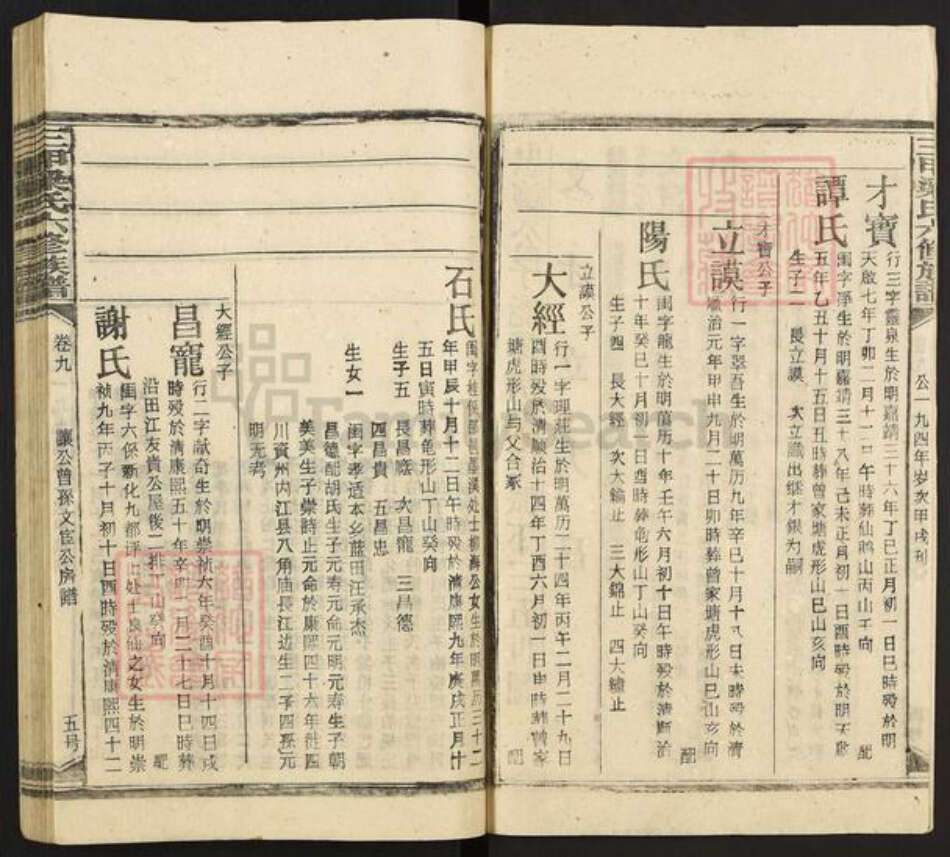 三甲梁氏六修族譜
公一九四年岁次甲戌刊
才寶
行三字靈泉生於明嘉靖三十六年丁巳正月初一日巳時殁於明
天啟七年丁卯二月十二日午時葬仙鵝山丙山壬向
配
譚氏
閨字淨生於明嘉靖三十八年己未正月初一日酉時殁於明天啟
五年乙丑十月十五日丑時葬曾家塘虎形山巳山亥向
生子二 長立謨 次立識出继才銀为嗣
才寶公子
立謨
行一字翠吾生於明萬历九年辛巳十月十九日未時殁於清
順治元年甲申九月二十日卯時葬曾家塘虎形山巳山亥向
配
陽氏
閨字龍生於明萬历十年壬午六月初十日午時殁於清順治
十年癸巳十月初三日酉時葬龟形山丁山癸向
生子四 長大經 次大鑰止 三大錦止 四大鐘止
立謨公子
大經
行一字理莊生於明萬历二十四年丙午二月二十九日
酉時殁於清順治十四年丁酉六月初一日申時葬曾家
塘虎形山与父合冢
配
石氏
年甲辰十月十二日午時殁於清康熙九年庚戌正月十
五日寅時葬龟形山丁山癸向
生子五 長昌蔭 次昌寵 三昌德
四昌貴 五昌忠
生女一
閨字泰适本乡蓝田汪承杰
昌德配胡氏生子元寿元命元明元寿生子朝
美美生子崇時止元命於康熙四十六年徙四
川資州内江县八角庙長江边生二子四孫元
明无考
大經公子
昌寵
行二字献奇生於明崇祯六年癸酉十月十四日戌
時殁於清康熙五十年辛卯二月二十七日巳時葬
沿田江友貴公屋後二排丁山癸向
配
謝氏
閨字六保新化九都坪山处士泉仙之女生於明崇
祯九年丙子十月初十日酉時殁於清康熙四十二
三甲梁氏六修族譜
卷九
讓公曾孫文宦公房譜
五号